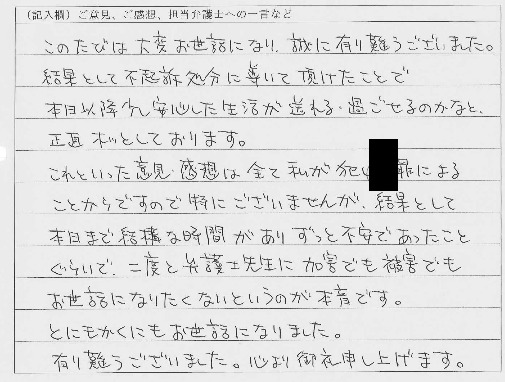 (記入欄)ご意見、ご感想、担当弁護士への一言など
このたびは大変お世話になり、誠に有り難うございました。
結果として不起訴処分に導いて頂けたことで
本日以降少し安心した生活が送れる・過ごせるのかなと、
正直ホッとしております。
これといった意見・感想は全て私が犯 罪による
ことからですので特にございませんが、結果として
本日まで結構な時間がありずっと不安であったこと
ぐらいで、二度と弁護士先生に加害でも被害でも
お世話になりたくないというのが本音です。
とにもかくにもお世話になりました。
有り難うございました。心より御礼申し上げます。